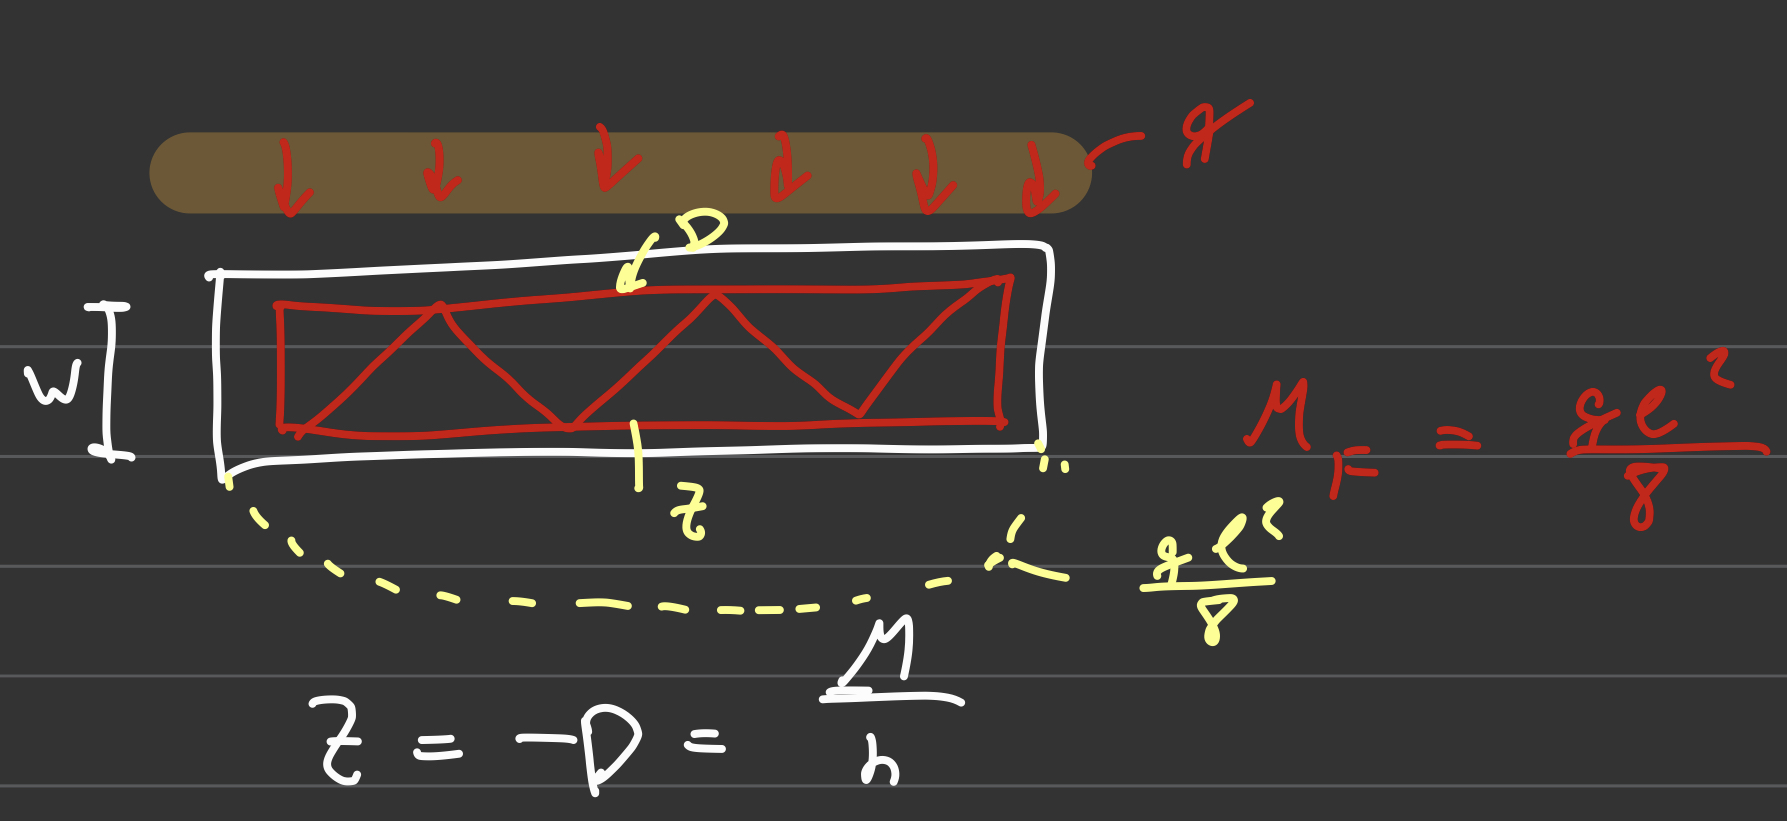 q
D
W
M = ql²/8
Z
ql²/8
Z = -D = M/h